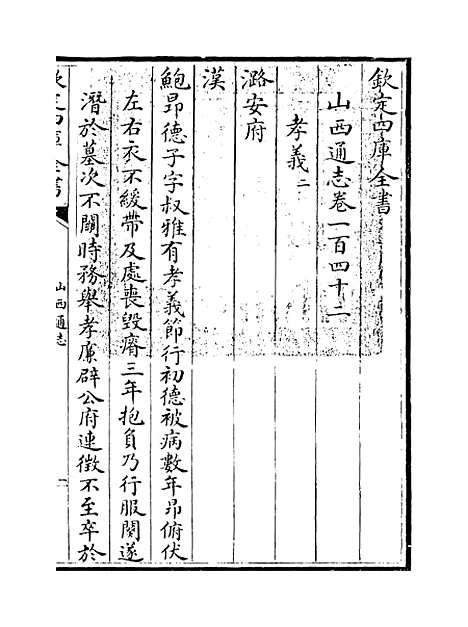 欽定四庫全書
山西通志卷一百四十二
孝義二
潞安府
漢
鮑昂德子字叔雅有孝義節行初德被病數年昂俯伏
左右衣不緩帶及處喪毀瘠三年抱負乃行服闋遂
潛於墓次不關時務舉孝廉辟公府連徵不至卒於
欽定四庫全書
山西通志
一